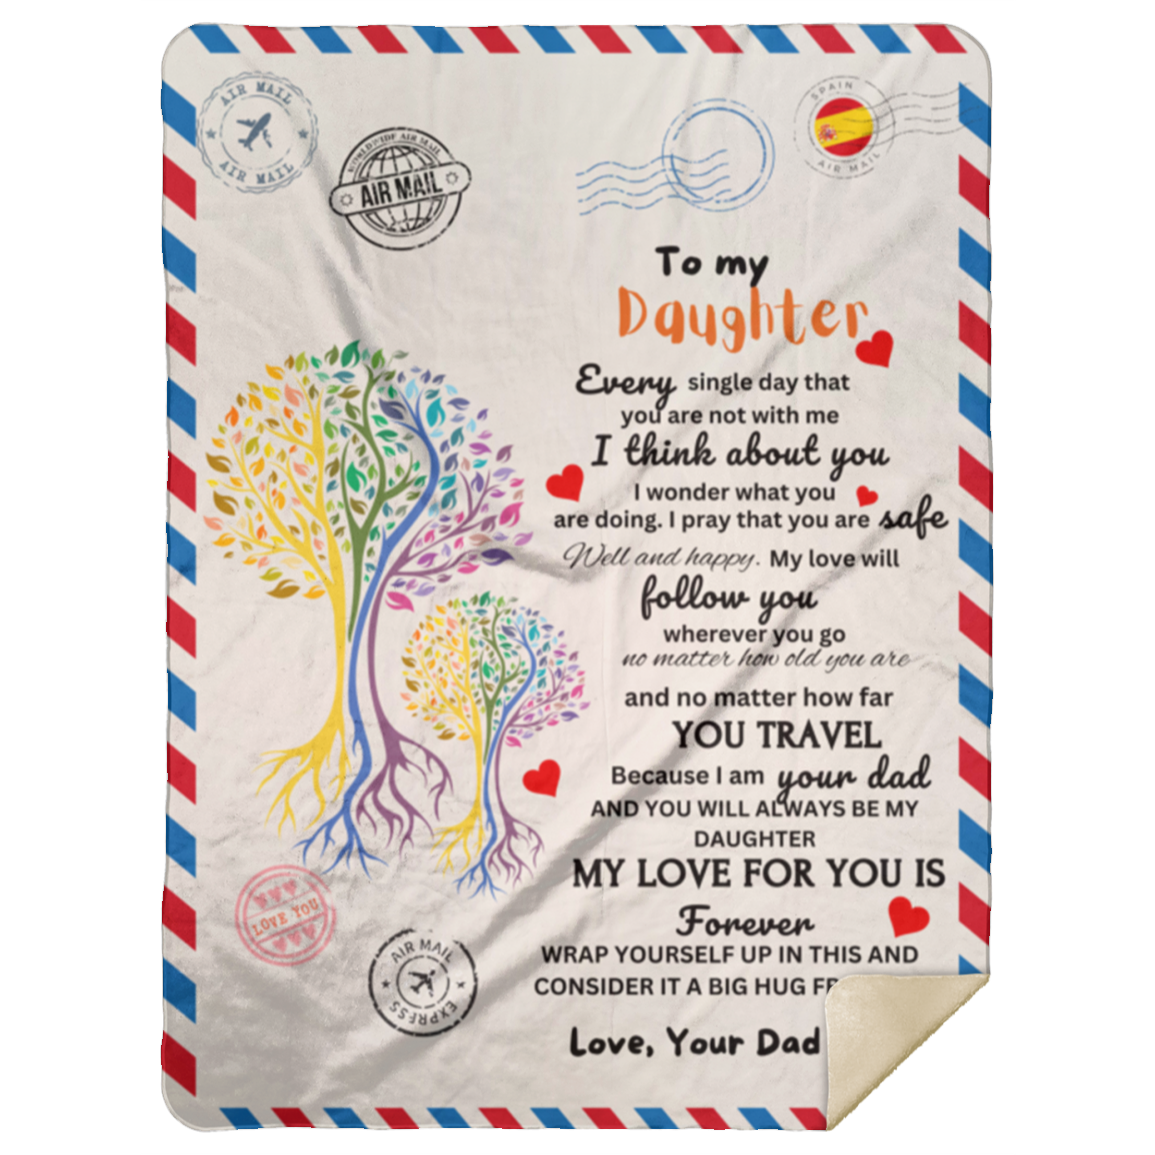 AIR MAIL
AIR MAIL
WORLDWIDE AIR MAIL
AIR MAIL
SPAIN
AIR MAIL
To my
Daughter
Every single day that
you are not with me
I think about you
I wonder what you
are doing. I pray that you are safe
Well and happy. My love will
follow you
wherever you go
no matter how old you are
and no matter how far
YOU TRAVEL
Because I am your dad
AND YOU WILL ALWAYS BE MY
DAUGHTER
MY LOVE FOR YOU IS
Forever
WRAP YOURSELF UP IN THIS AND
CONSIDER IT A BIG HUG FR
Love, Your Dad
LOVE YOU
AIR MAIL
EXPRESS